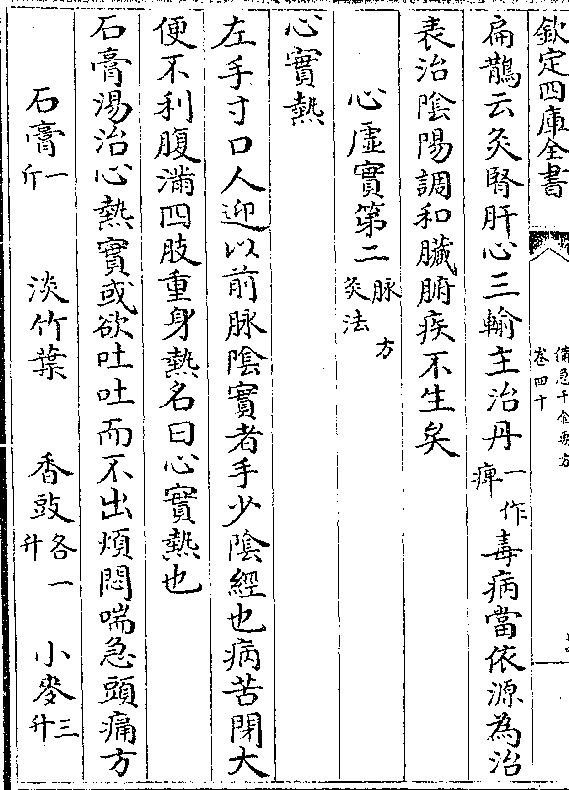 欽定四庫全書
備急千金要方
卷四十
扁鵲云灸腎肝心三輸主治丹一作痺毒病當依源為治
表治陰陽調和臟腑疾不生矣
心虛實第二脉方灸法
心實熱
左手寸口人迎以前脉陰實者手少陰經也病苦閉大
便不利腹滿四肢重身熱名曰心實熱也
石膏湯治心熱實或欲吐吐而不出煩悶喘急頭痛方
石膏一斤 淡竹葉 香豉各一升 小麥三升